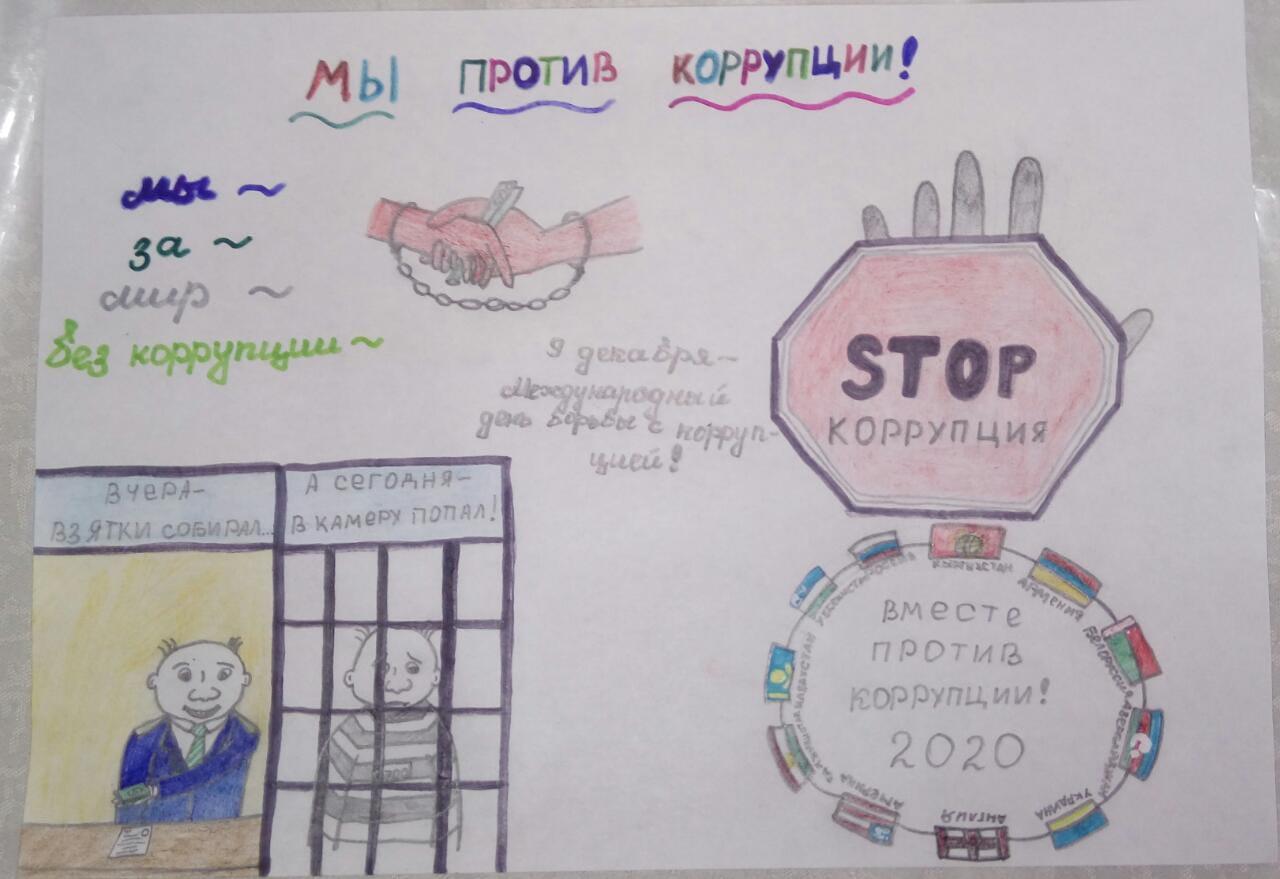 МЫ ПРОТИВ КОРРУПЦИИ!
мы ~
за ~
мир ~
без коррупции ~
9 декабря -
Международный
день борьбы с корруп-
цией!
STOP
КОРРУПЦИЯ
ВЧЕРА-
ВЗЯТКИ СОБИРАЛ...
А СЕГОДНЯ-
В КАМЕРУ ПОПАЛ!
ВМЕСТЕ
ПРОТИВ
КОРРУПЦИИ!
2020
КЫРГЫЗСТАН
АРМЕНИЯ
БЕЛОРУССИЯ
АЗЕРБАЙДЖАН
УКРАИНА
АНГЛИЯ
АМЕРИКА
ТАДЖИКИСТАН
КАЗАХСТАН
УЗБЕКИСТАН
РОССИЯ